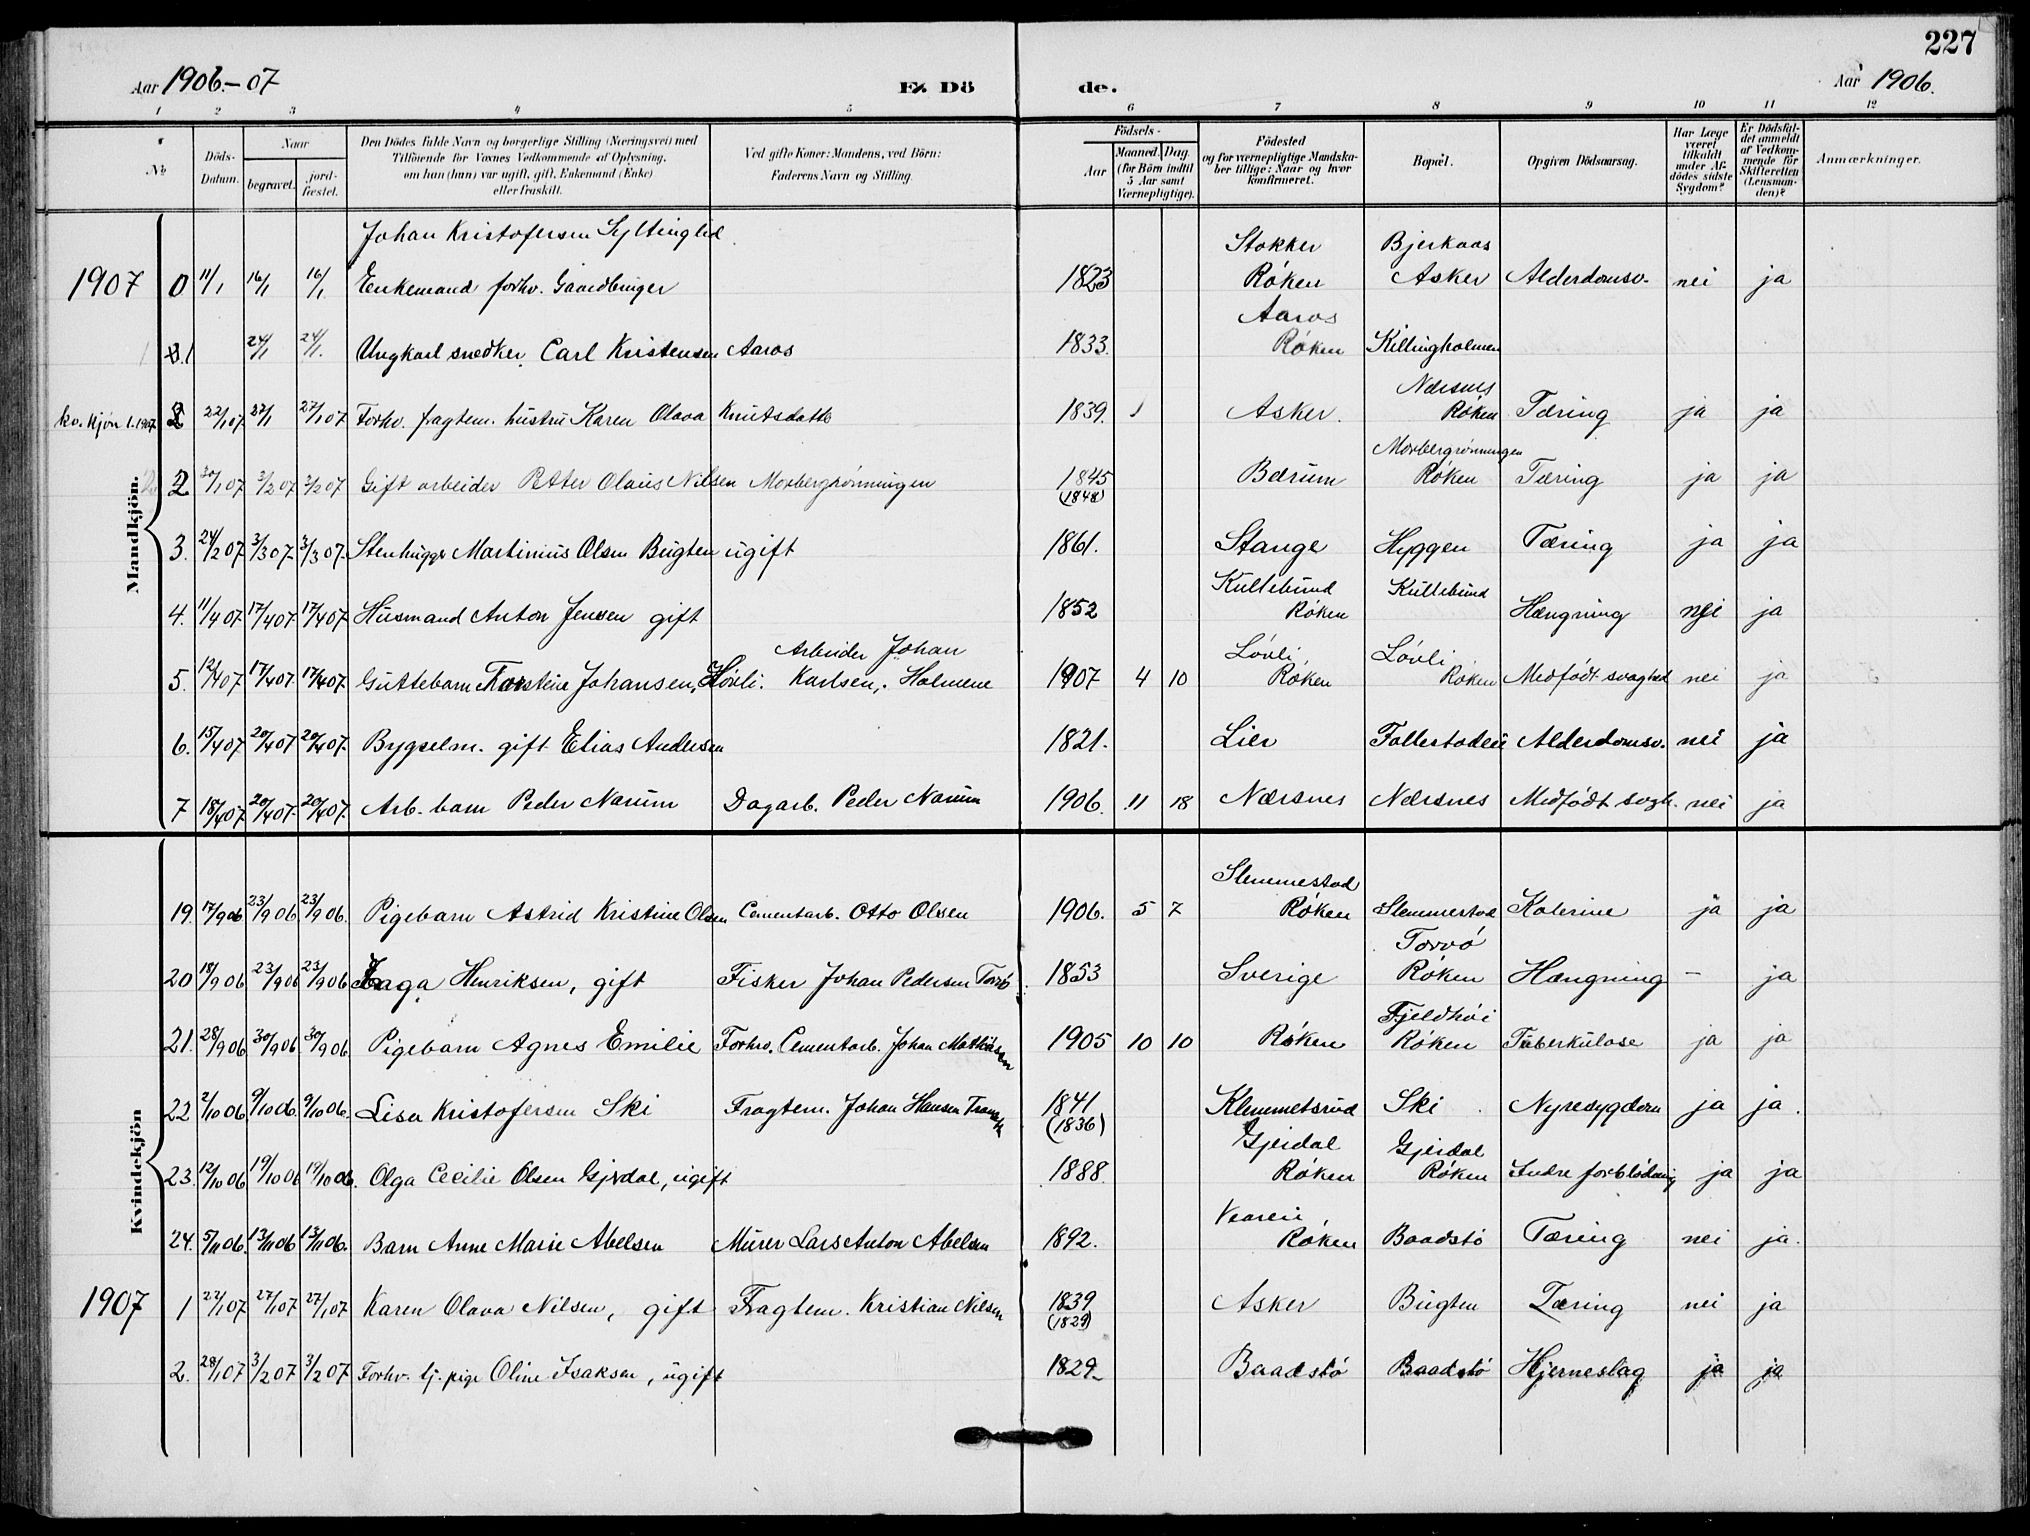 227
Aar 1906.-07
E. Dö de.
Aar 1906.
1 2 3 4 5 6 7 8 9 10 11 12
No
Döds-Datum.
Naar
begravet.
jord-fæstet.
Den Dödes fulde Navn og borgerlige Stilling (Næringsvei) med
Tilföiende for Voxnes Vedkommende af Oplysning,
om han (hun) var ugift, gift, Enkemand (Enke)
eller fraskilt.
Ved gifte Koner: Mandens, ved Börn:
Faderens Navn og Stilling.
Födsels-
Aar
Maaned. Dag
(for Börn indtil 5 Aar samt Værnepligtige).
Födested
og for værnepligtige Mandska-
ber tillige: Naar og hvor
konfirmeret.
Bopæl.
Opgiven Dödsaarsag.
Har Læge været tilkaldt under Af-dödes sidste Sygdom?
Er Dödsfal-det anmeldt af Vedkom-mende for Skifteretten (Lensman-den)?
Anmærkninger.
Mandkjön.
1907 0 11/1 16/1 16/1 Johan Kristofersen Syltinglid Enkemand forhv. Gaardbruger 1823 Stokker Röken Bjerkaas Asker Alderdomsv. nei ja
1 24/1 24/1. Ungkarl snedker Carl Kristensen Aaros 1833. Aaros Röken Killingholmen
kv. kjön 1.1907 2 22/107. 27/1 27/107 Forhv. fragtem. hustru Karen Olava Knutsdatt 1839. Asker. Nærsnes Röken Tæring ja ja
2 30/107 3/207 3/207 Gift arbeider Petter Olaus Nilsen Morbergrönningen 1845 (1848) Bærum Morbergrönningen Röken Tæring ja ja
3. 24/207 3/307. 3/307. Stenhugger Martinius Olsen Bugten ugift 1861. Stange Hyggen Tæring ja ja
4. 11/407 17/407 17/407. Husmand Anton Jensen gift 1852 Kultebund Röken Kultebund Hængning nei ja
5. 12/407 17/407 17/407. Guttebarn Torstein Johansen, Lövli. Arbeider Johan Karlsen, Holmene 1907 4 10 Lövli Röken Lövli Röken Medfödt svaghed nei ja
6. 15/407 20/407 20/407. Bygselm. gift Elias Andersen 1821. Lier Follestadeie Alderdomsv. nei ja
7 18/407. 20/407. 20/407. Arb. barn Peder Narum Dagarb. Peder Narum 1906. 11 18 Nærsnes Nærsnes Medfödt svagh. nei ja
Kvindekjön
19. 17/906 23/906 23/906. Pigebarn Astrid Kristine Olsen Cementarb. Otto Olsen 1906. 5 7 Slemmestad Röken Slemmestad Kolerine ja ja
20 18/906 23/906 23/906 Inga Henriksen, gift Fisker Johan Pedersen Torvö 1853 Sverige Torvö Röken Hængning - ja
21. 28/906 30/906 30/906 Pigebarn Agnes Emilie Forhv. Cementarb. Johan Mathisen 1905 10 10 Röken Fjeldhöi Röken Tuberkulose ja ja
22 2/1006 9/1006. 9/1006. Lisa Kristofersen Ski Fragtem. Johan Hansen 1841 (1836) Klemmetsrud Ski Nyresygdom ja ja.
23. 12/1006 19/1006 19/1006. Olga Cecilie Olsen Gjerdal, ugift 1888. Gjerdal Röken Gjerdal Röken Indre forblödning ja ja
24. 5/1106. 13/1106 13/1106. Barn Anne Marie Abelsen Murer Lars Anton Abelsen 1892. Vaaren Röken Baadstö Tæring nei ja.
1907 1 22/107 27/107 27/107 Karen Olava Nilsen, gift Fragtem. Kristian Nilsen 1839 (1829) Asker Bugten Tæring nei ja
2. 28/107 3/207 3/207 Forhv. tj. pige Oline Isaksen, ugift 1829 Baadstö Baadstö Hjerneslag ja ja